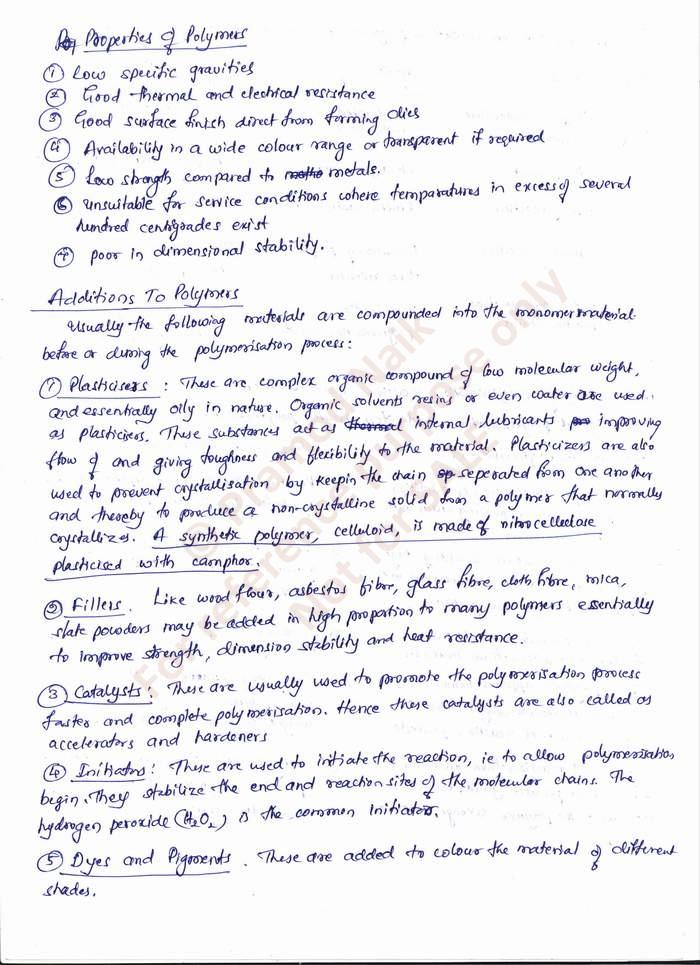 Properties of Polymers
① Low specific gravities
② Good thermal and electrical resistance
③ Good surface finish direct from forming dies
④ Availability in a wide colour range or transparent if required
⑤ Low strength compared to metals.
⑥ unsuitable for service conditions where temparatures in excess of several
hundred centigrades exist
⑦ poor in dimensional stability.
Additions To Polymers
Usually the following materials are compounded into the monomer material
before or during the polymerisation process:
① Plasticisers : These are complex organic compound of low molecular weight,
and essentially oily in nature. Organic solvents resins or even water are used
as plasticisers. These substances act as thermal internal lubricants improving
flow of and giving toughness and flexibility to the material. Plasticizers are also
used to prevent crystallisation by keepin the chain seperated from one another
and thereby to produce a non-crystalline solid from a polymer that normally
crystallizes. A synthetic polymer, celluloid, is made of nitrocellelose
plasticised with camphor.
② Fillers. Like wood flour, asbestos fibre, glass fibre, cloth fibre, mica,
slate powders may be added in high proportion to many polymers essentially
to improve strength, dimension stability and heat resistance.
③ Catalysts: These are usually used to promote the polymerisation process
faster and complete polymerisation. Hence these catalysts are also called as
accelerators and hardeners
④ Initiators: These are used to initiate the reaction, ie to allow polymerisation
begin. They stabilize the end and reaction sites of the molecular chains. The
hydrogen peroxide (H₂O₂) is the common initiator.
⑤ Dyes and Pigments. These are added to colour the material of different
shades.
© Pramod Naik
For reference purpose only
Not for